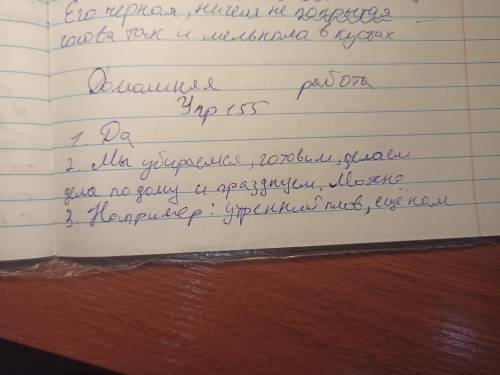 Его черная, ничем не покрытая
голова так и мелькала в кустах
Домашняя работа
Упр 155
1. Да
2. Мы убираемся, готовим, делаем
дела по дому и празднуем. Можно
3. Например: утренний плов, ещё нам